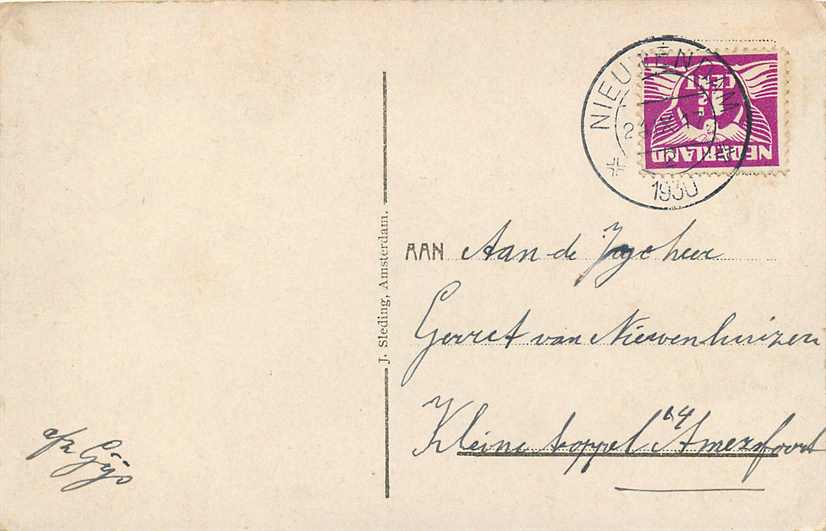 NIEUWENDAM
1930
NEDERLAND
CENT
J. Sleding, Amsterdam.
AAN Aan de Jogeheer
Gerret van Niewenhuizen
Kleine koppel 24 Amersfoort
afz Gijs